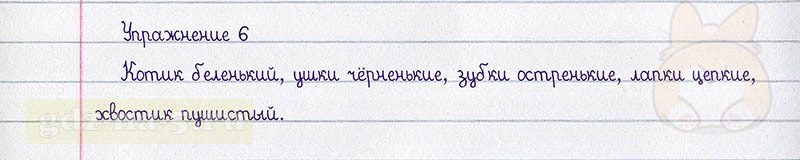 Упражнение 6
Котик беленький, ушки чёрненькие, зубки остренькие, лапки цепкие,
хвостик пушистый.